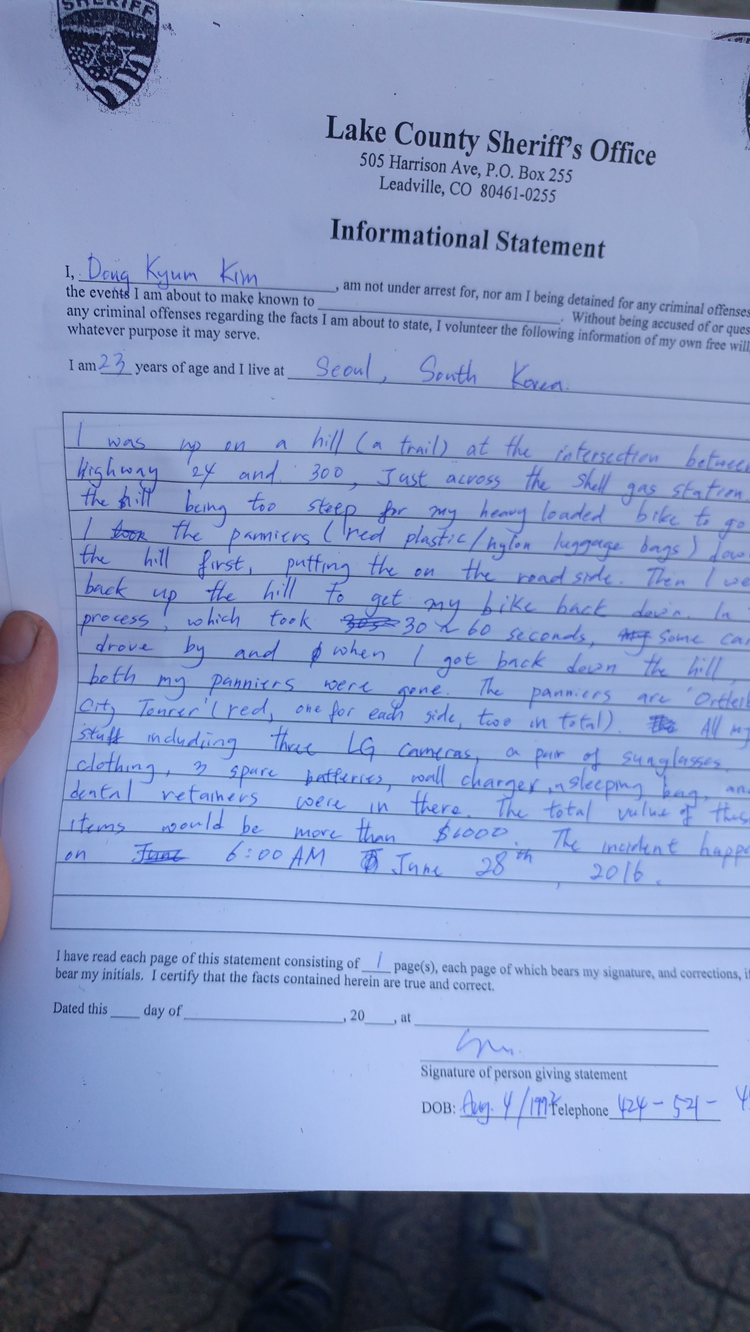 SHERIFF
Lake County Sheriff's Office
505 Harrison Ave, P.O. Box 255
Leadville, CO 80461-0255
Informational Statement
I, Dong Kyum Kim, am not under arrest for, nor am I being detained for any criminal offenses
the events I am about to make known to ____. Without being accused of or ques
any criminal offenses regarding the facts I am about to state, I volunteer the following information of my own free will
whatever purpose it may serve.
I am 23 years of age and I live at Seoul, South Korea.
I was up on a hill (a trail) at the intersection between
Highway 24 and 300, Just across the shell gas station.
the hill being too steep for my heavy loaded bike to go
I the panniers (red plastic/nylon luggage bags) dow
the hill first, putting the on the road side. Then I we
back up the hill to get my bike back down. In
process, which took 30 ~ 60 seconds, some car
drove by and when I got back down the hill,
both my panniers were gone. The panniers are 'Ortlieb
City Tourer' (red, one for each side, two in total). All my
stuff including three LG cameras, a pair of sunglasses
clothing, 3 spare batteries, wall charger, a sleeping bag, and
dental retainers were in there. The total value of thes
items would be more than $1000. The incident happe
on 6:00 AM June 28th, 2016.
I have read each page of this statement consisting of 1 page(s), each page of which bears my signature, and corrections, if
bear my initials. I certify that the facts contained herein are true and correct.
Dated this ____ day of ____, 20__, at ____
Signature of person giving statement
DOB: Aug. 4/1992 Telephone 424-521-